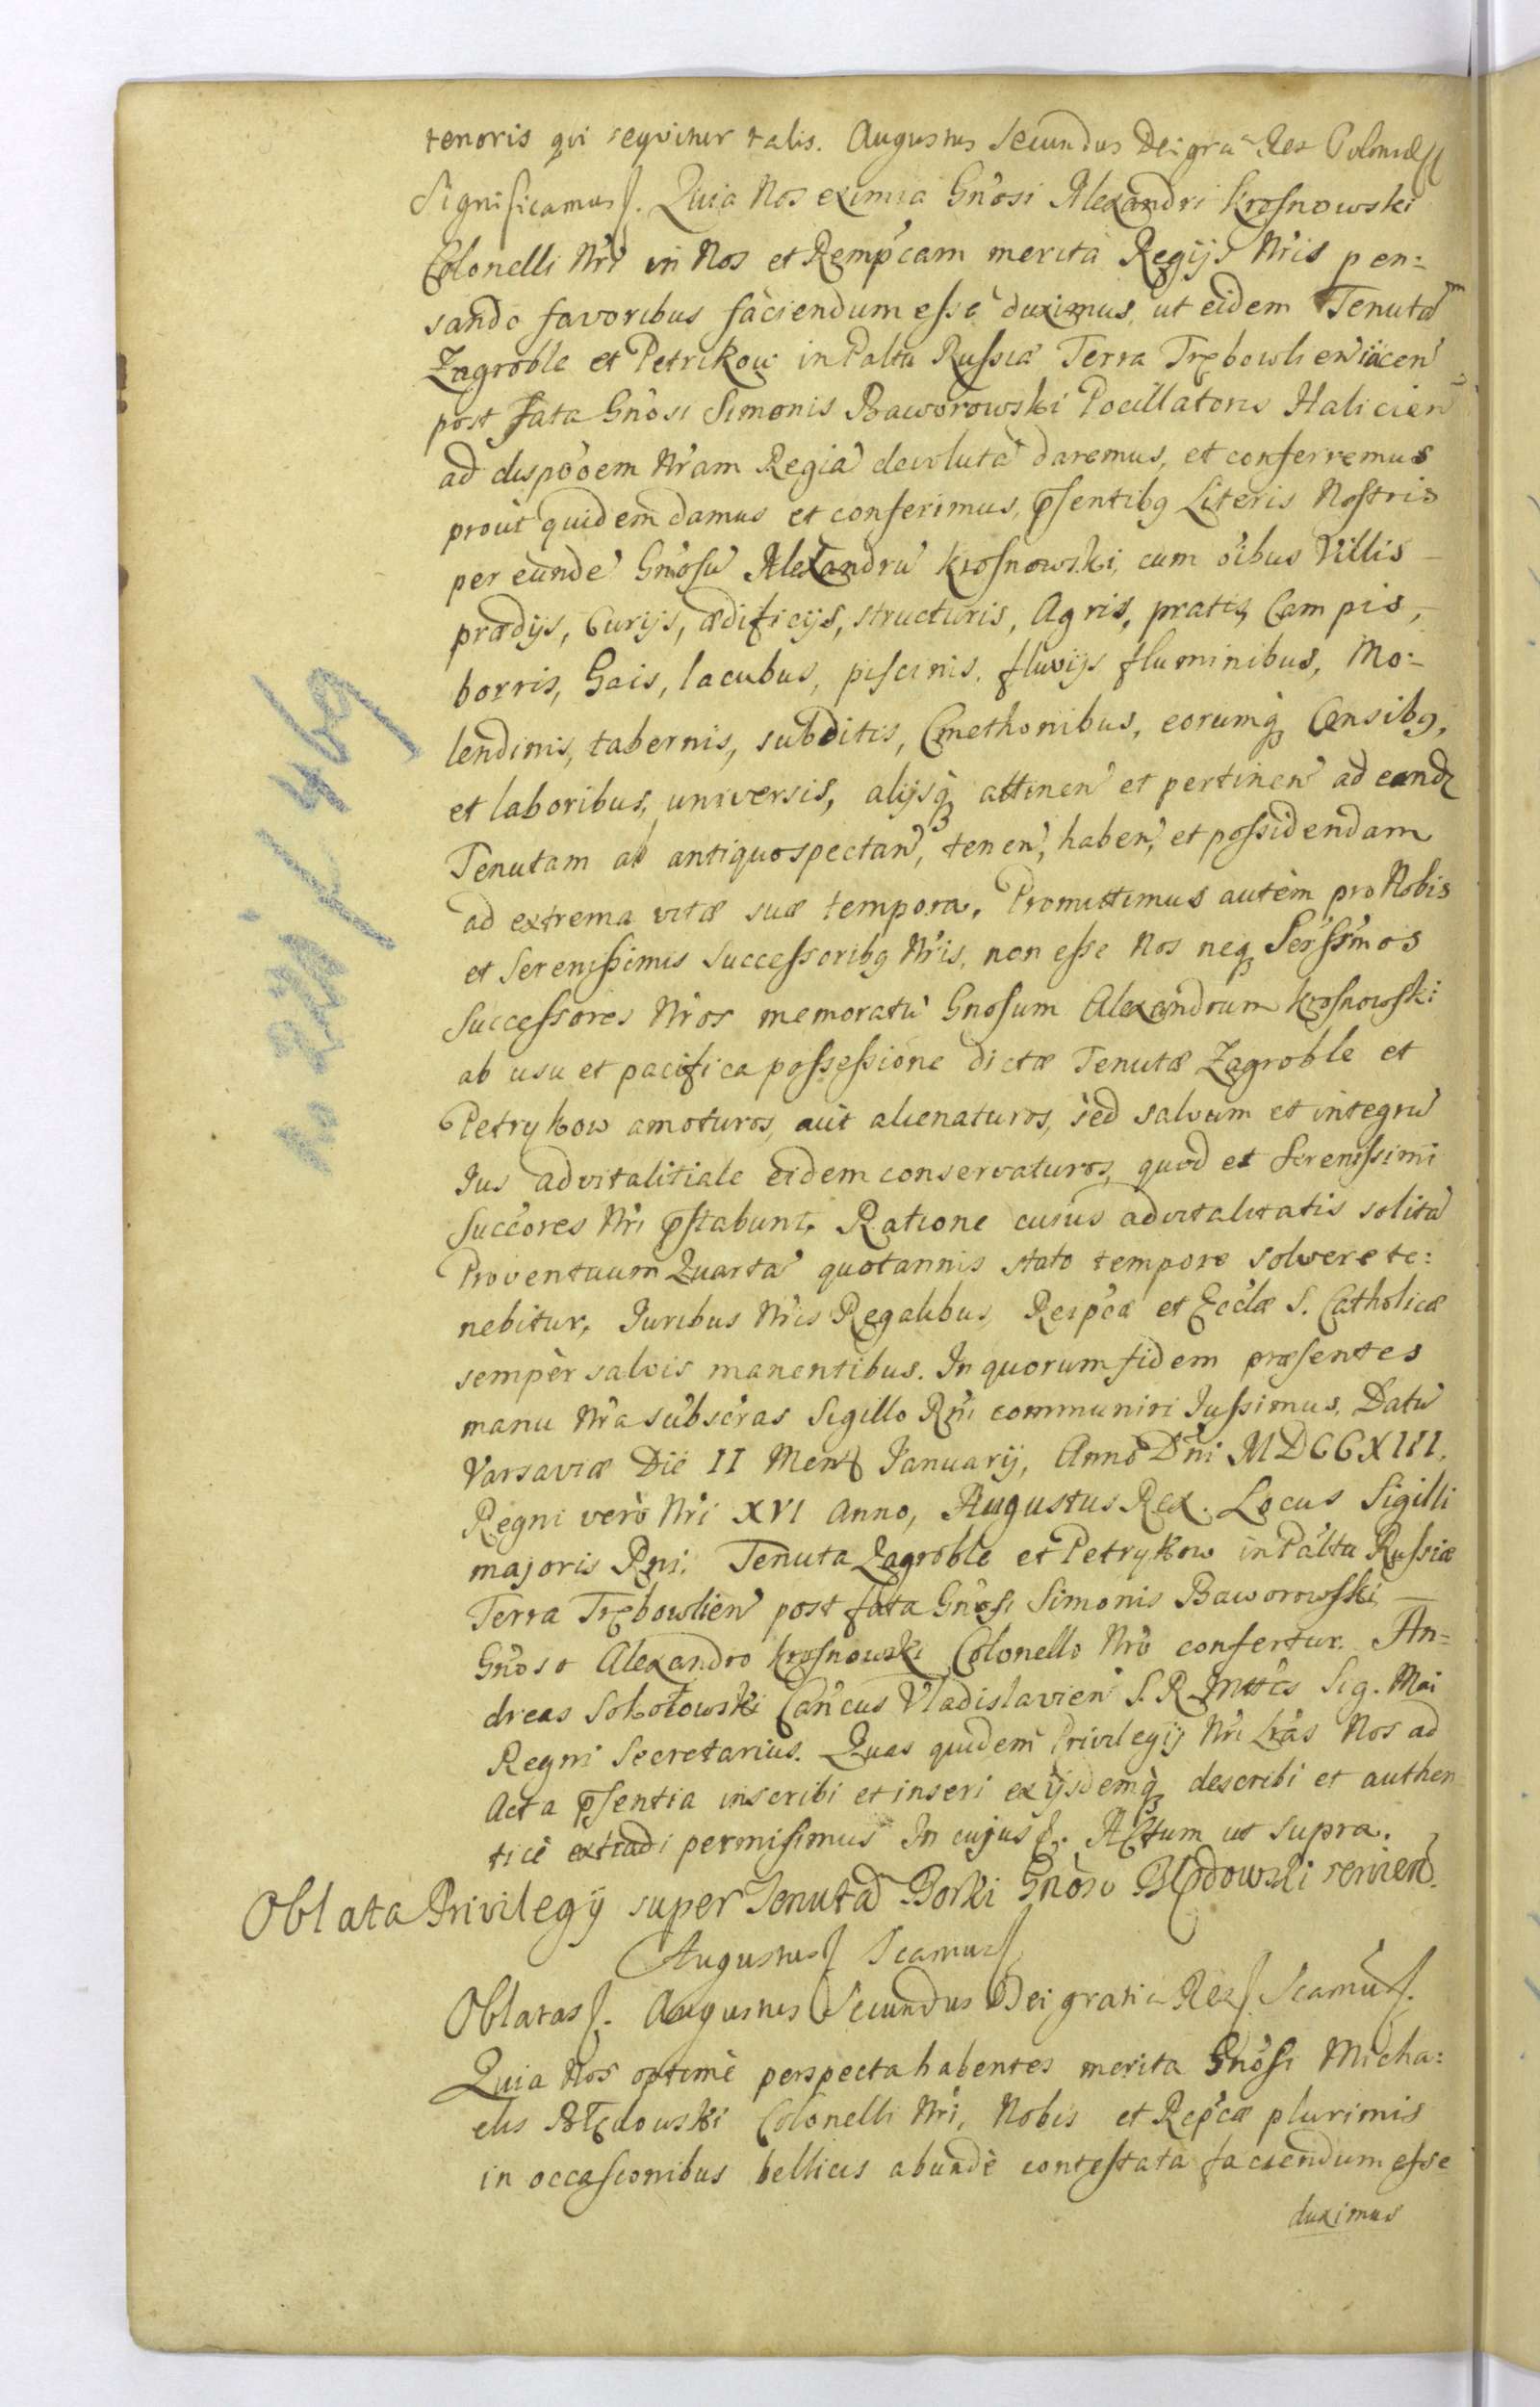 tenoris qvi seqvitur talis. Augustus Secundus Dei gra Rex Poloniae
Significamus. Quia Nos eximia Gnosi Alexandri Krosnowski
Colonelli Nri in Nos et Rempcam merita Regijs Nris pen:
sando favoribus faciendum esse duximus, ut eidem Tenutam
Zagroble et Petrikow in Paltu Russiæ Terra Trębowlien iacen
post fata Gnosi Simonis Baworowski Pocillatoris Halicien
ad dispooem Nram Regia devoluta daremus, et conferremus
prout quidem damus et conferimus, psentibq Literis Nostris
per eunde Gnosu Alexandru Krosnowski, cum oibus Villis
prædijs, Curijs, ædificijs, structuris, Agris, pratis, Campis,
borris, Gais, lacubus, piscinis, fluvijs fluminibus, Mo:
lendinis, tabernis, subditis, Cmethonibus, eorumq Censibq,
et laboribus, universis, alijsq attinen et pertinen ad eandz
Tenutam ab antiquo spectan, tenen, haben, et possidendam
ad extrema vitæ suæ tempora. Promittimus autèm pro Nobis
et Serenissimis Successoribq Nris, non esse Nos neq Serssimos
Successores Nros memoratu Gnosum Alexandrum Krosnowski
ab usu et pacifica possessione dictæ Tenutæ Zagroble et
Petrykow amoturos, aut alienaturos, sed salvum et integru
Jus advitalitiale eidem conservaturos, quod et Serenissimi
Succores Nri pstabunt. Ratione cuius advitalitatis solita
Proventuum Quarta quotannis stato tempore solvere te:
nebitur, Juribus Nris Regalibus, Reipcæ et Ecclæ S. Catholicæ
sempèr salvis manentibus. In quorum fidem præsentes
manu Nra subscras Sigillo Rni communiri Jussimus. Datu
Varsaviæ Die II Mens Januarij, Anno Dni MDCCXIII.
Regni verò Nri XVI Anno, Augustus Rex. Locus Sigilli
majoris Rni. Tenuta Zagroble et Petrykow in Paltu Russiæ
Terra Trębowlien post fata Gnosi Simonis Baworowski
Gnoso Alexandro Krosnowski Colonello Nro confertur. An=
dreas Sokołowski Cancus Vladislavien S. R. Mttis Sig. Mai
Regni Secretarius. Quas quidem Privilegij Nri Lras Nos ad
Acta psentia inscribi et inseri exijsdemq describi et authen
ticè extradi permisimus In cujus. Actum ut supra.
Oblata Privilegij super Tenuta Borki Gnoso Błędowski servien.
Augustus Scamus
Oblatas. Augustus Secundus Dei gratia Rex Scamus.
Quia Nos optimè perspecta habentes merita Gnosi Micha:
elis Błędowski Colonelli Nri, Nobis et Reipcæ plurimis
in occasionibus bellicis abundè contestata faciendum esse
duximus